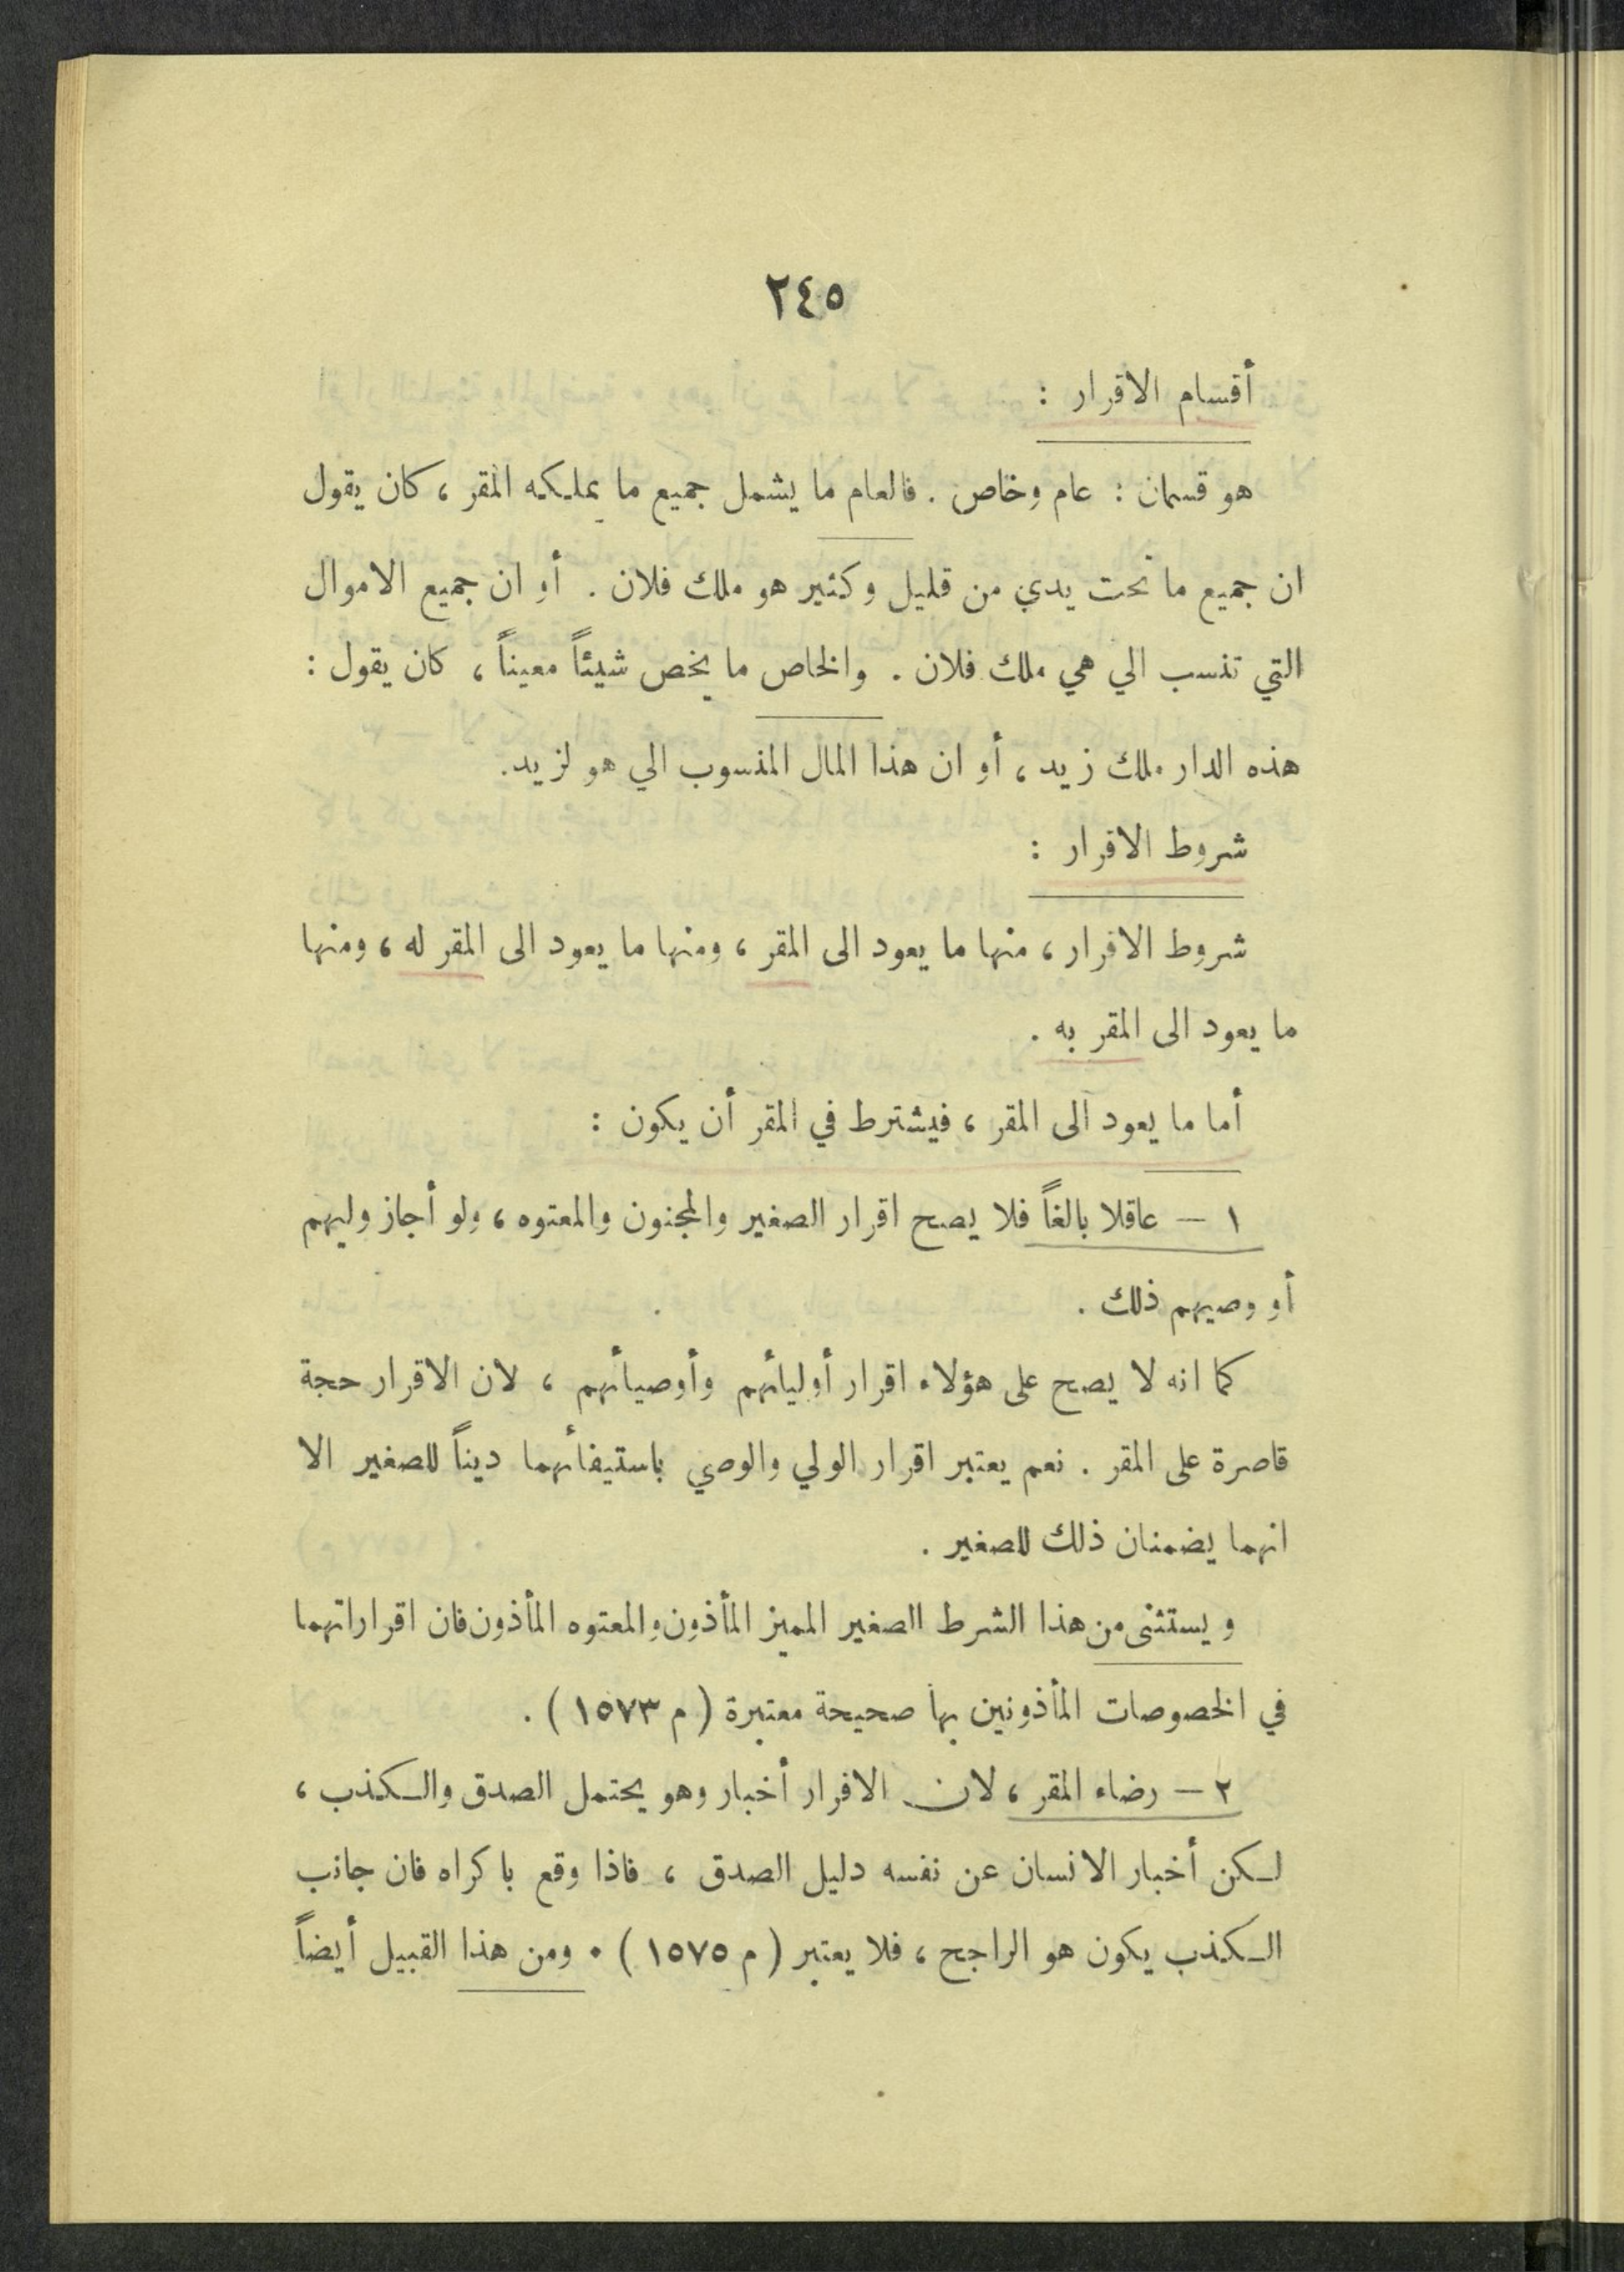 ٢٤٥
أقسام الاقرار :
هو قسمان : عام وخاص . فالعام ما يشمل جميع ما يملكه المقر ، كان يقول
ان جميع ما تحت يدي من قليل وكثير هو ملك فلان . أو ان جميع الاموال
التي تنسب الي هي ملك فلان . والخاص ما يخص شيئاً معيناً ، كان يقول :
هذه الدار ملك زيد ، أو ان هذا المال المنسوب الي هو لزيد .
شروط الاقرار :
شروط الاقرار ، منها ما يعود الى المقر ، ومنها ما يعود الى المقر له ، ومنها
ما يعود الى المقر به .
أما ما يعود الى المقر ، فيشترط في المقر أن يكون :
١ – عاقلا بالغاً فلا يصح اقرار الصغير والمجنون والمعتوه ، ولو أجاز وليهم
أو وصيهم ذلك .
كما انه لا يصح على هؤلاء اقرار أوليائهم وأوصيائهم ، لان الاقرار حجة
قاصرة على المقر . نعم يعتبر اقرار الولي والوصي باستيفائهما ديناً للصغير الا
انهما يضمنان ذلك للصغير .
ويستثنى من هذا الشرط الصغير المميز المأذون والمعتوه المأذون فان اقراراتهما
في الخصوصات المأذونين بها صحيحة معتبرة ( م ١٥٧٣ ) .
٢ – رضاء المقر ، لان الاقرار أخبار وهو يحتمل الصدق والكذب ،
لكن أخبار الانسان عن نفسه دليل الصدق ، فاذا وقع باكراه فان جانب
الكذب يكون هو الراجح ، فلا يعتبر ( م ١٥٧٥ ) . ومن هذا القبيل أيضاً